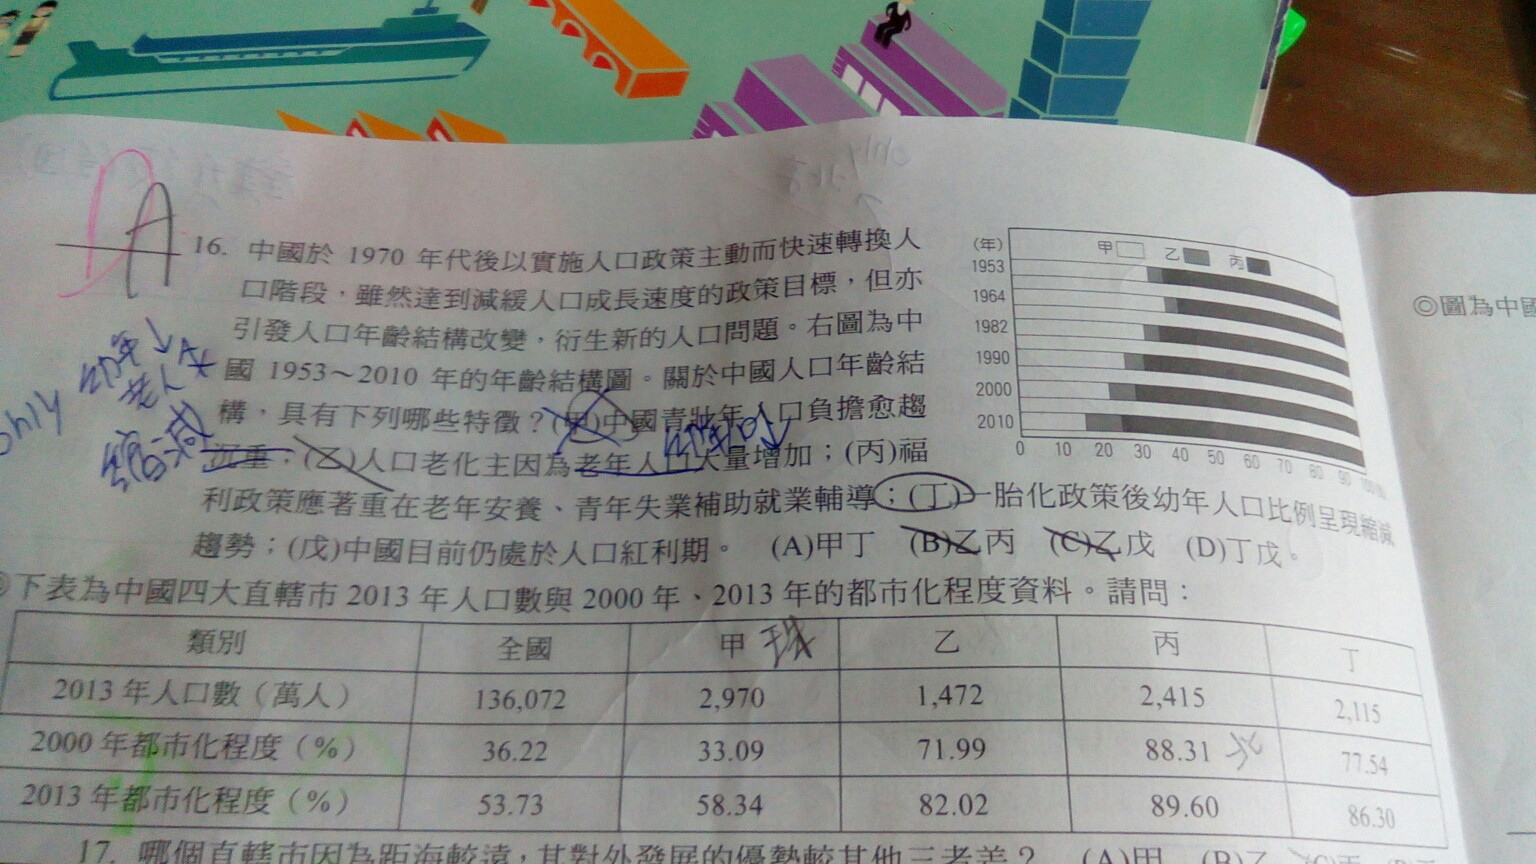 only
DA
16. 中國於 1970 年代後以實施人口政策主動而快速轉換人
口階段，雖然達到減緩人口成長速度的政策目標，但亦
引發人口年齡結構改變，衍生新的人口問題。右圖為中
國 1953～2010 年的年齡結構圖。關於中國人口年齡結
構，具有下列哪些特徵？(甲)中國青壯年人口負擔愈趨
沉重；(乙)人口老化主因為老年人口大量增加；(丙)福
利政策應著重在老年安養、青年失業補助就業輔導；(丁)一胎化政策後幼年人口比例呈現縮減
趨勢；(戊)中國目前仍處於人口紅利期。 (A)甲丁 (B)乙丙 (C)乙戊 (D)丁戊。
幼年↓
老人
only
縮減
幼年人口↓
(年) 甲 乙 丙
1953
1964
1982
1990
2000
2010
0 10 20 30 40 50 60 70 80 90 100
◎圖為中國
下表為中國四大直轄市 2013 年人口數與 2000 年、2013 年的都市化程度資料。請問：
類別 全國 甲 乙 丙 丁
2013 年人口數（萬人） 136,072 2,970 1,472 2,415 2,115
2000 年都市化程度（%） 36.22 33.09 71.99 88.31 77.54
2013 年都市化程度（%） 53.73 58.34 82.02 89.60 86.30
17. 哪個直轄市因為距海較遠，其對外發展的優勢較其他三者差？ (A)甲 (B)乙 (C)丙